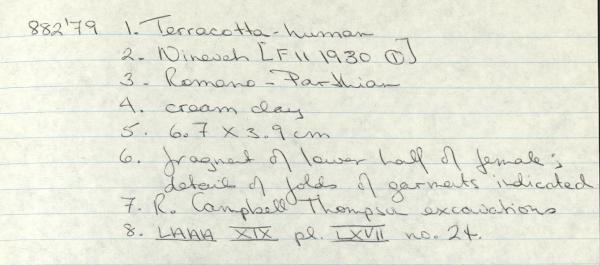 882'79 1. Terracotta-human
2. Nineveh [F II 1930 ①]
3. Romano-Parthian
4. cream clay
5. 6.7 x 3.9 cm
6. fragment of lower half of female;
details of folds of garments indicated
7. R. Campbell Thompson excavations
8. LAAA XIX pl. LXVII no. 24.